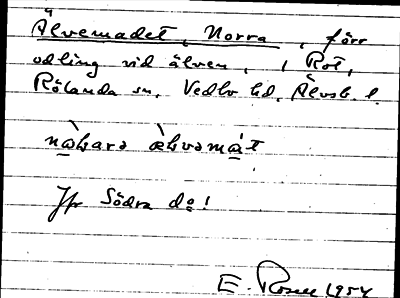 Älvemadet, Norra, förr
odling vid älven, i Rot,
Rölanda sn, Vedbo hd, Älvsb. l.
nàharə æ̀hvəmát
Jfr Södra do!
E. Rosell 1954